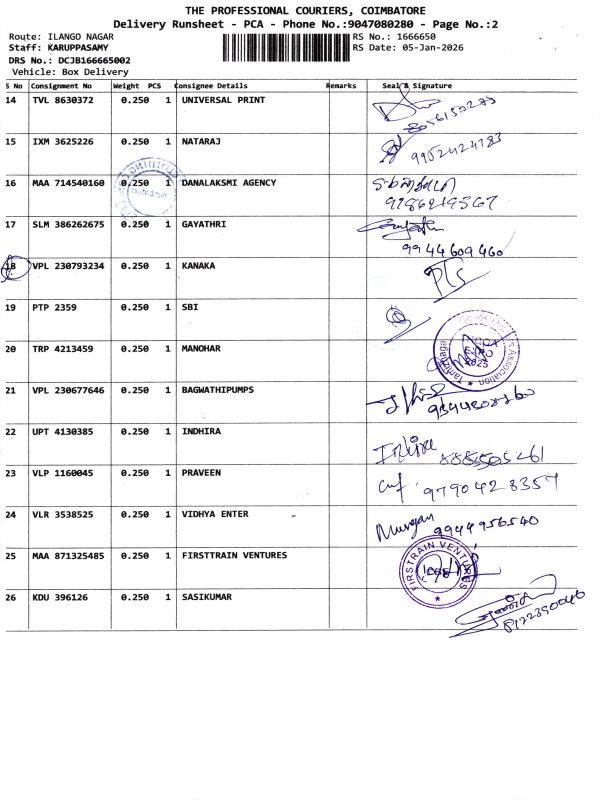 THE PROFESSIONAL COURIERS, COIMBATORE
Delivery Runsheet - PCA - Phone No.:9047080280 - Page No.:2
Route: ILANGO NAGAR RS No.: 1666650
Staff: KARUPPASAMY RS Date: 05-Jan-2026
DRS No.: DCJB166665002
Vehicle: Box Delivery
S No Consignment No Weight PCS Consignee Details Remarks Seal & Signature
14 TVL 8630372 0.250 1 UNIVERSAL PRINT
15 IXM 3625226 0.250 1 NATARAJ
9952424783
16 MAA 714540160 0.250 1 DANALAKSMI AGENCY
17 SLM 386262675 0.250 1 GAYATHRI
9944609460
18 VPL 230793234 0.250 1 KANAKA
19 PTP 2359 0.250 1 SBI
20 TRP 4213459 0.250 1 MANOHAR
Association
21 VPL 230677646 0.250 1 BAGWATHIPUMPS
22 UPT 4130385 0.250 1 INDHIRA
23 VLP 1160045 0.250 1 PRAVEEN
9790428357
24 VLR 3538525 0.250 1 VIDHYA ENTER
Murugan 9944956540
25 MAA 871325485 0.250 1 FIRSTTRAIN VENTURES
FIRSTRAIN VENTURES
26 KDU 396126 0.250 1 SASIKUMAR